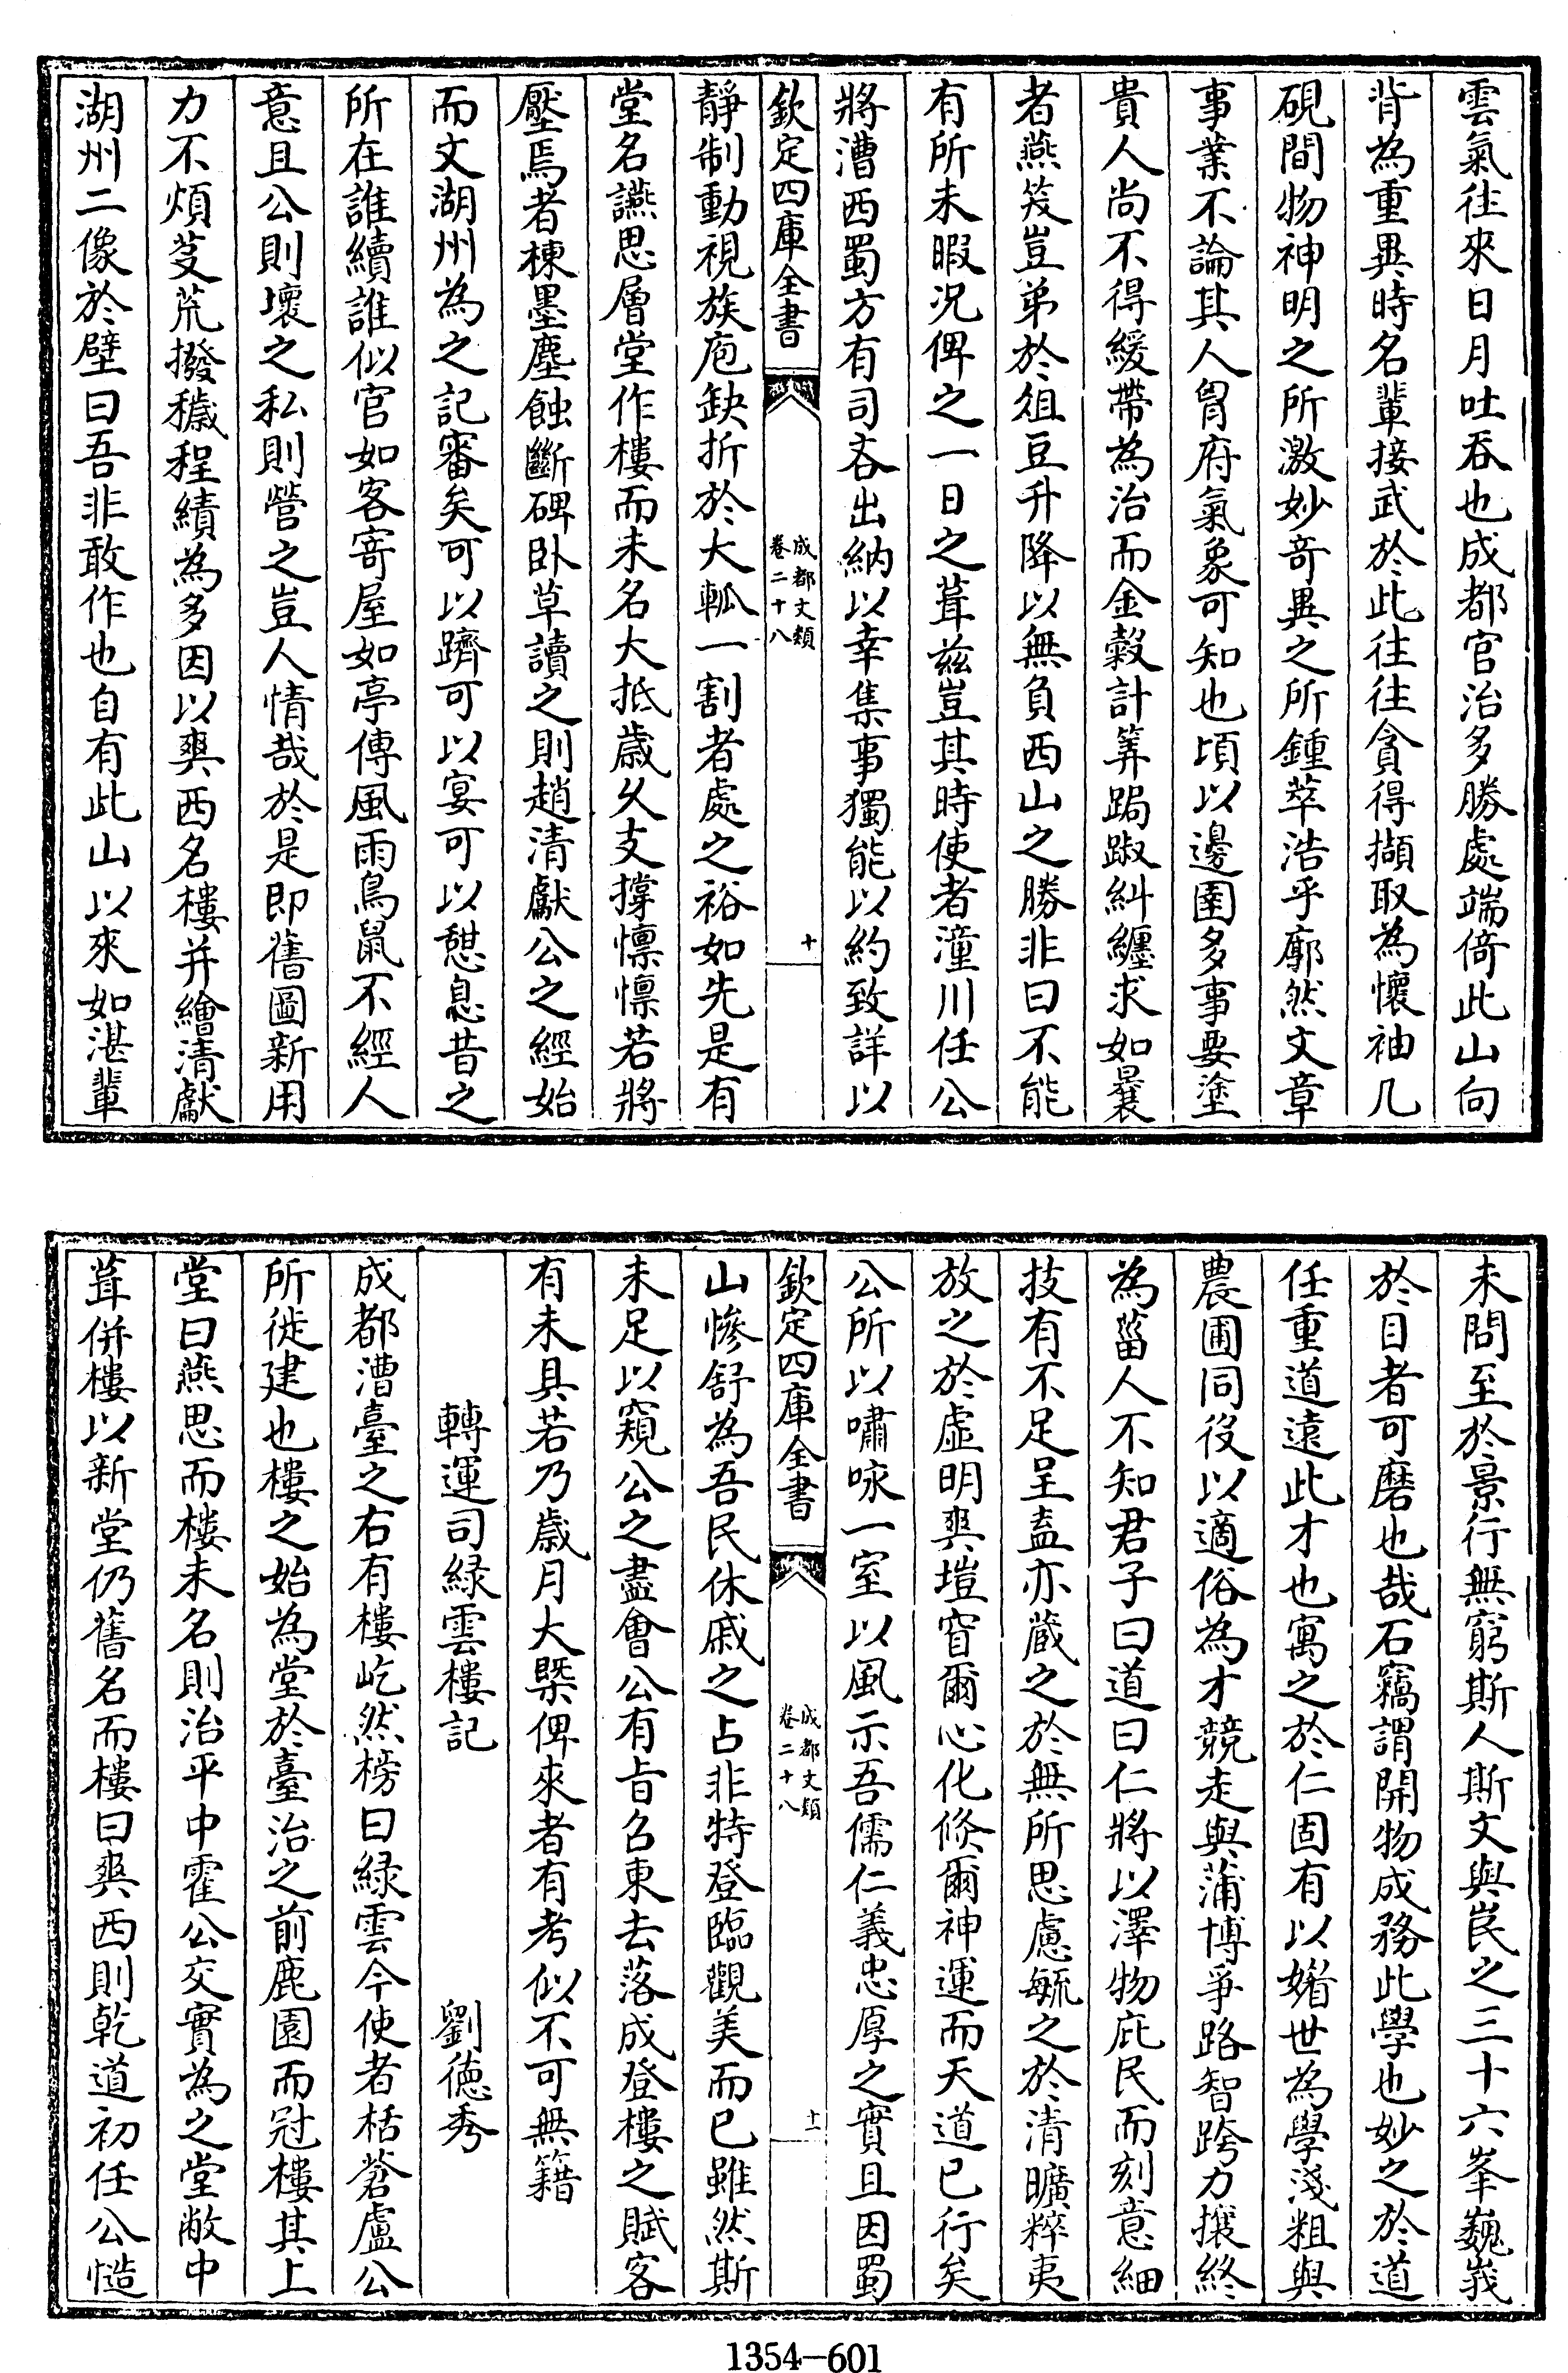 雲氣往來日月吐吞也成都官治多勝處端倚此山向
背為重異時名輩接武於此往往貪得擷取為懷袖几
硯間物神明之所激妙奇異之所鍾萃浩乎廓然文章
事業不論其人胷府氣象可知也頃以邊圉多事要塗
貴人尚不得緩帶為治而金穀計筭跼踧糾纏求如曩
者燕笑豈弟於俎豆升降以無負西山之勝非曰不能
有所未暇况俾之一日之葺兹豈其時使者潼川任公
將漕西蜀方有司吝出納以幸集事獨能以約致詳以
欽定四庫全書
成都文類
卷二十八
十
靜制動視族庖缺折於大軱一割者處之裕如先是有
堂名讌思層堂作樓而未名大抵歲乆支撑懔懔若將
壓焉者棟墨塵蝕斷碑卧草讀之則趙清獻公之經始
而文湖州為之記審矣可以躋可以宴可以憇息昔之
所在誰續誰似官如客寄屋如亭傳風雨鳥鼠不經人
意且公則壞之私則營之豈人情哉於是即舊圖新用
力不煩芟荒撥穢程績為多因以爽西名樓并繪清獻
湖州二像於壁曰吾非敢作也自有此山以來如湛輩
未問至於景行無窮斯人斯文與峎之三十六峯巍峩
於目者可磨也哉石竊謂開物成務此學也妙之於道
任重道遠此才也寓之於仁固有以媘世為學淺粗與
農圃同役以適俗為才競走與蒲博爭路智跨力攘終
為菑人不知君子曰道曰仁將以澤物庇民而刻意細
技有不足呈盍亦蔵之於無所思慮毓之於清曠粹夷
放之於虚明爽塏窅爾心化倐爾神運而天道已行矣
公所以嘯咏一室以風示吾儒仁義忠厚之實且因蜀
欽定四庫全書
成都文類
卷二十八
十一
山慘舒為吾民休戚之占非特登臨觀美而已雖然斯
未足以窺公之盡會公有旨召東去落成登樓之賦客
有未具若乃歲月大槩俾來者有考似不可無籍
轉運司緑雲樓記
劉德秀
成都漕臺之右有樓屹然榜曰緑雲今使者栝蒼盧公
所徙建也樓之始為堂於臺治之前鹿園而冠樓其上
堂曰燕思而樓未名則治平中霍公交實為之堂敝中
葺併樓以新堂仍舊名而樓曰爽西則乾道初任公慥
1354—601